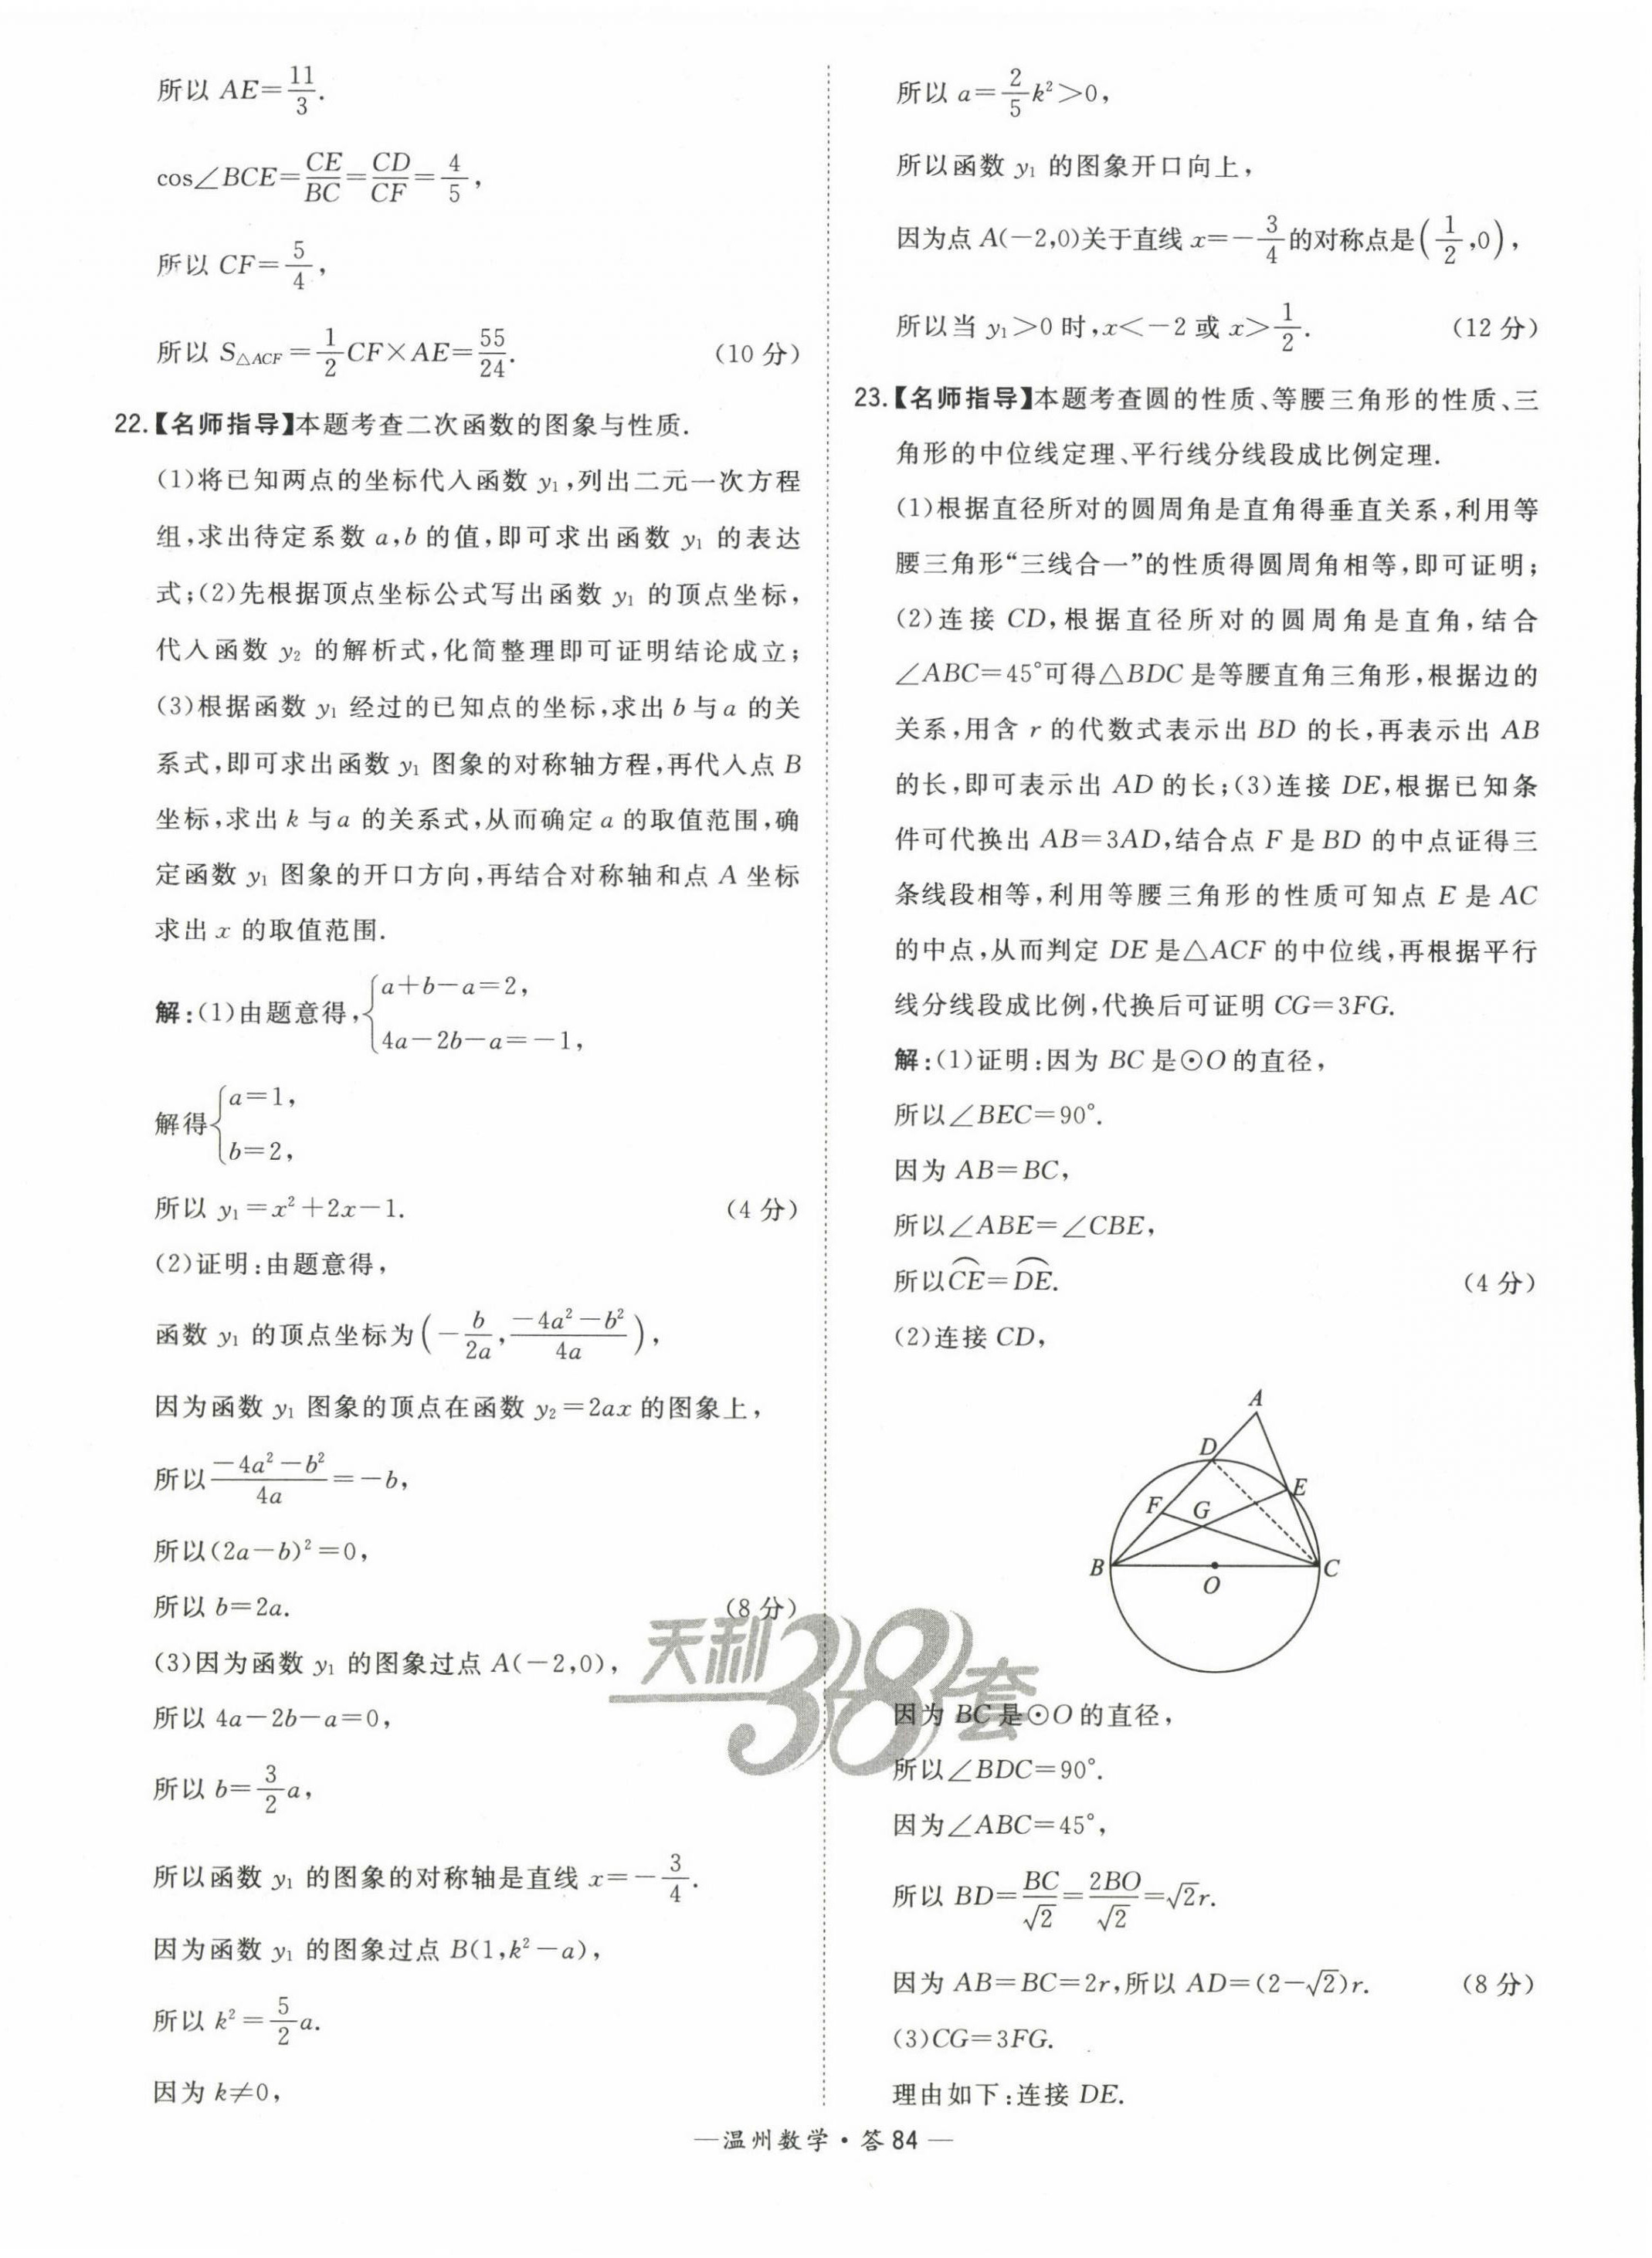 所以 AE=11/3.
cos∠BCE=CE/BC=CD/CF=4/5,
所以 CF=5/4,
所以 S△ACF=1/2CF×AE=55/24. (10 分)
22.【名师指导】本题考查二次函数的图象与性质.
(1)将已知两点的坐标代入函数 y₁,列出二元一次方程
组,求出待定系数 a,b 的值,即可求出函数 y₁ 的表达
式;(2)先根据顶点坐标公式写出函数 y₁ 的顶点坐标,
代入函数 y₂ 的解析式,化简整理即可证明结论成立;
(3)根据函数 y₁ 经过的已知点的坐标,求出 b 与 a 的关
系式,即可求出函数 y₁ 图象的对称轴方程,再代入点 B
坐标,求出 k 与 a 的关系式,从而确定 a 的取值范围,确
定函数 y₁ 图象的开口方向,再结合对称轴和点 A 坐标
求出 x 的取值范围.
解:(1)由题意得,{a+b-a=2,
4a-2b-a=-1,
解得{a=1,
b=2,
所以 y₁=x²+2x-1. (4 分)
(2)证明:由题意得,
函数 y₁ 的顶点坐标为(-b/2a,(-4a²-b²)/4a),
因为函数 y₁ 图象的顶点在函数 y₂=2ax 的图象上,
所以(-4a²-b²)/4a=-b,
所以(2a-b)²=0,
所以 b=2a. (8 分)
(3)因为函数 y₁ 的图象过点 A(-2,0),
所以 4a-2b-a=0,
所以 b=3/2a,
所以函数 y₁ 的图象的对称轴是直线 x=-3/4.
因为函数 y₁ 的图象过点 B(1,k²-a),
所以 k²=5/2a.
因为 k≠0,
所以 a=2/5k²>0,
所以函数 y₁ 的图象开口向上,
因为点 A(-2,0)关于直线 x=-3/4的对称点是(1/2,0),
所以当 y₁>0 时,x<-2 或 x>1/2. (12 分)
23.【名师指导】本题考查圆的性质、等腰三角形的性质、三
角形的中位线定理、平行线分线段成比例定理.
(1)根据直径所对的圆周角是直角得垂直关系,利用等
腰三角形“三线合一”的性质得圆周角相等,即可证明;
(2)连接 CD,根据直径所对的圆周角是直角,结合
∠ABC=45°可得△BDC 是等腰直角三角形,根据边的
关系,用含 r 的代数式表示出 BD 的长,再表示出 AB
的长,即可表示出 AD 的长;(3)连接 DE,根据已知条
件可代换出 AB=3AD,结合点 F 是 BD 的中点证得三
条线段相等,利用等腰三角形的性质可知点 E 是 AC
的中点,从而判定 DE 是△ACF 的中位线,再根据平行
线分线段成比例,代换后可证明 CG=3FG.
解:(1)证明:因为 BC 是⊙O 的直径,
所以∠BEC=90°.
因为 AB=BC,
所以∠ABE=∠CBE,
所以⌒CE=⌒DE. (4 分)
(2)连接 CD,
A
D
E
F
G
B
C
O
因为 BC 是⊙O 的直径,
所以∠BDC=90°.
因为∠ABC=45°,
所以 BD=BC/√2=2BO/√2=√2r.
因为 AB=BC=2r,所以 AD=(2-√2)r. (8 分)
(3)CG=3FG.
理由如下:连接 DE.
天利38套
—温州数学·答84—